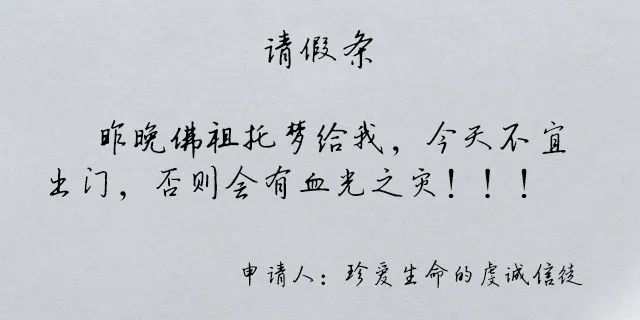 请假条
昨晚佛祖托梦给我，今天不宜
出门，否则会有血光之灾！！！
申请人：珍爱生命的虔诚信徒